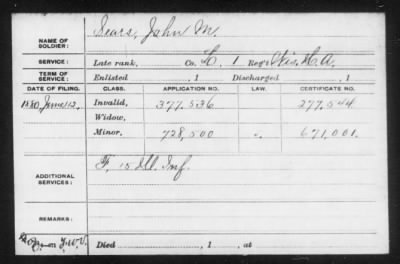 NAME OF SOLDIER: Sears, John M.
SERVICE: Late rank, Co. L, 1 Reg't Wis. H.A.
TERM OF SERVICE: Enlisted , 1 Discharged , 1
DATE OF FILING. CLASS. APPLICATION NO. LAW. CERTIFICATE NO.
1880 June 12. Invalid, 377,536 277,544
Widow,
Minor, 728,500 " 671,001.
ADDITIONAL SERVICES: F, 15 Ill. Inf.
REMARKS:
Died , 1 , at